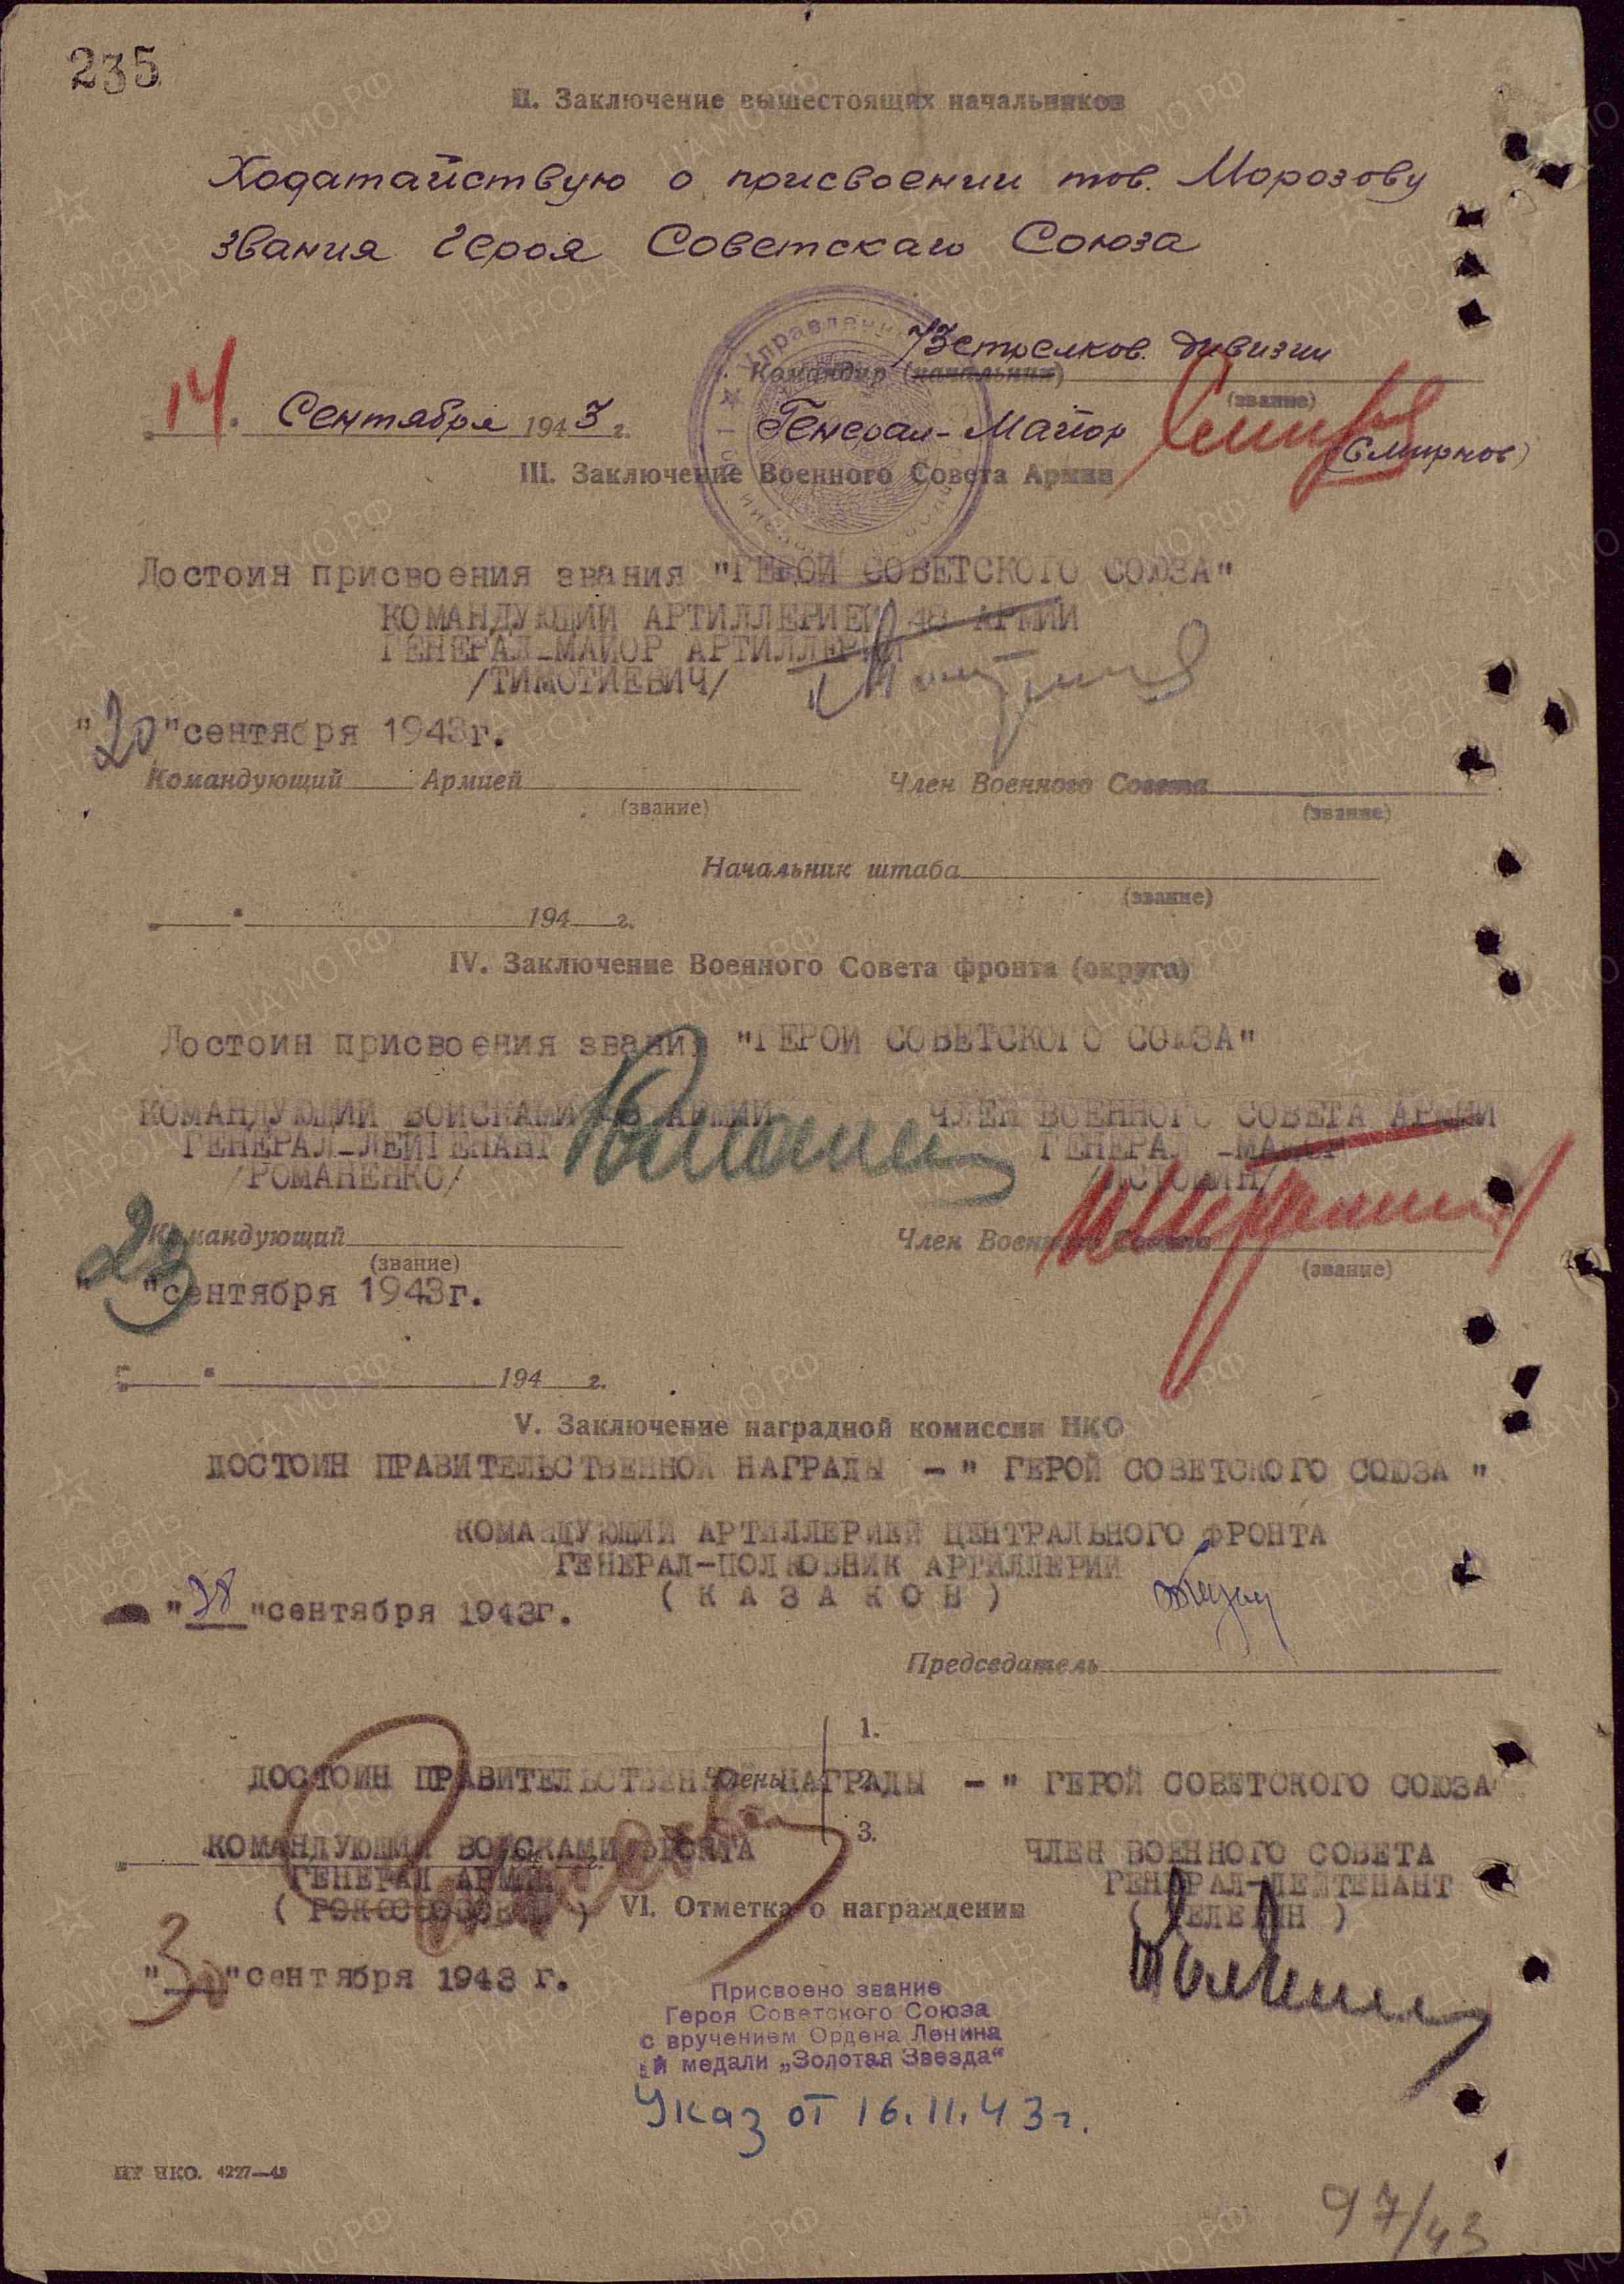 235
II. Заключение вышестоящих начальников
Ходатайствую о присвоении тов. Морозову
звания Героя Советскаго Союза
73 стрелков. дивизии
Командир (начальник)
(звание)
14 Сентября 1943 г.
Генерал-Майор
(Смирнов)
III. Заключение Военного Совета Армии
Достоин присвоения звания "ГЕРОЙ СОВЕТСКОГО СОЮЗА"
КОМАНДУЮЩИЙ АРТИЛЛЕРИЕЙ 48 АРМИИ
ГЕНЕРАЛ-МАЙОР АРТИЛЛЕРИИ
/ТИМОТИЕВИЧ/
"20" сентября 1943г.
Командующий Армией
(звание)
Член Военного Совета
(звание)
Начальник штаба
(звание)
" " 194 г.
IV. Заключение Военного Совета фронта (округа)
Достоин присвоения звания "ГЕРОЙ СОВЕТСКОГО СОЮЗА"
КОМАНДУЮЩИЙ ВОЙСКАМИ 48 АРМИИ
ГЕНЕРАЛ-ЛЕЙТЕНАНТ
/РОМАНЕНКО/
ЧЛЕН ВОЕННОГО СОВЕТА АРМИИ
ГЕНЕРАЛ-МАЙОР
/ИСТОМИН/
Командующий
(звание)
Член Военного Совета
(звание)
"23" сентября 1943г.
" " 194 г.
V. Заключение наградной комиссии НКО
ДОСТОИН ПРАВИТЕЛЬСТВЕННОЙ НАГРАДЫ - " ГЕРОЙ СОВЕТСКОГО СОЮЗА "
КОМАНДУЮЩИЙ АРТИЛЛЕРИЕЙ ЦЕНТРАЛЬНОГО ФРОНТА
ГЕНЕРАЛ-ПОЛКОВНИК АРТИЛЛЕРИИ
( К А З А К О В )
"28" сентября 1943г.
Председатель
1.
Члены 2.
ДОСТОИН ПРАВИТЕЛЬСТВЕННОЙ НАГРАДЫ - " ГЕРОЙ СОВЕТСКОГО СОЮЗА
3.
КОМАНДУЮЩИЙ ВОЙСКАМИ ФРОНТА
ГЕНЕРАЛ АРМИИ
( РОКОССОВСКИЙ )
ЧЛЕН ВОЕННОГО СОВЕТА
ГЕНЕРАЛ-ЛЕЙТЕНАНТ
( ТЕЛЕГИН )
VI. Отметка о награждении
"30" сентября 1943 г.
Присвоено звание
Героя Советского Союза
с вручением Ордена Ленина
и медали „Золотая Звезда“
Указ от 16.11.43г.
НКО. 4227—43
97/43
ПАМЯТЬ НАРОДА
ЦА МО.РФ